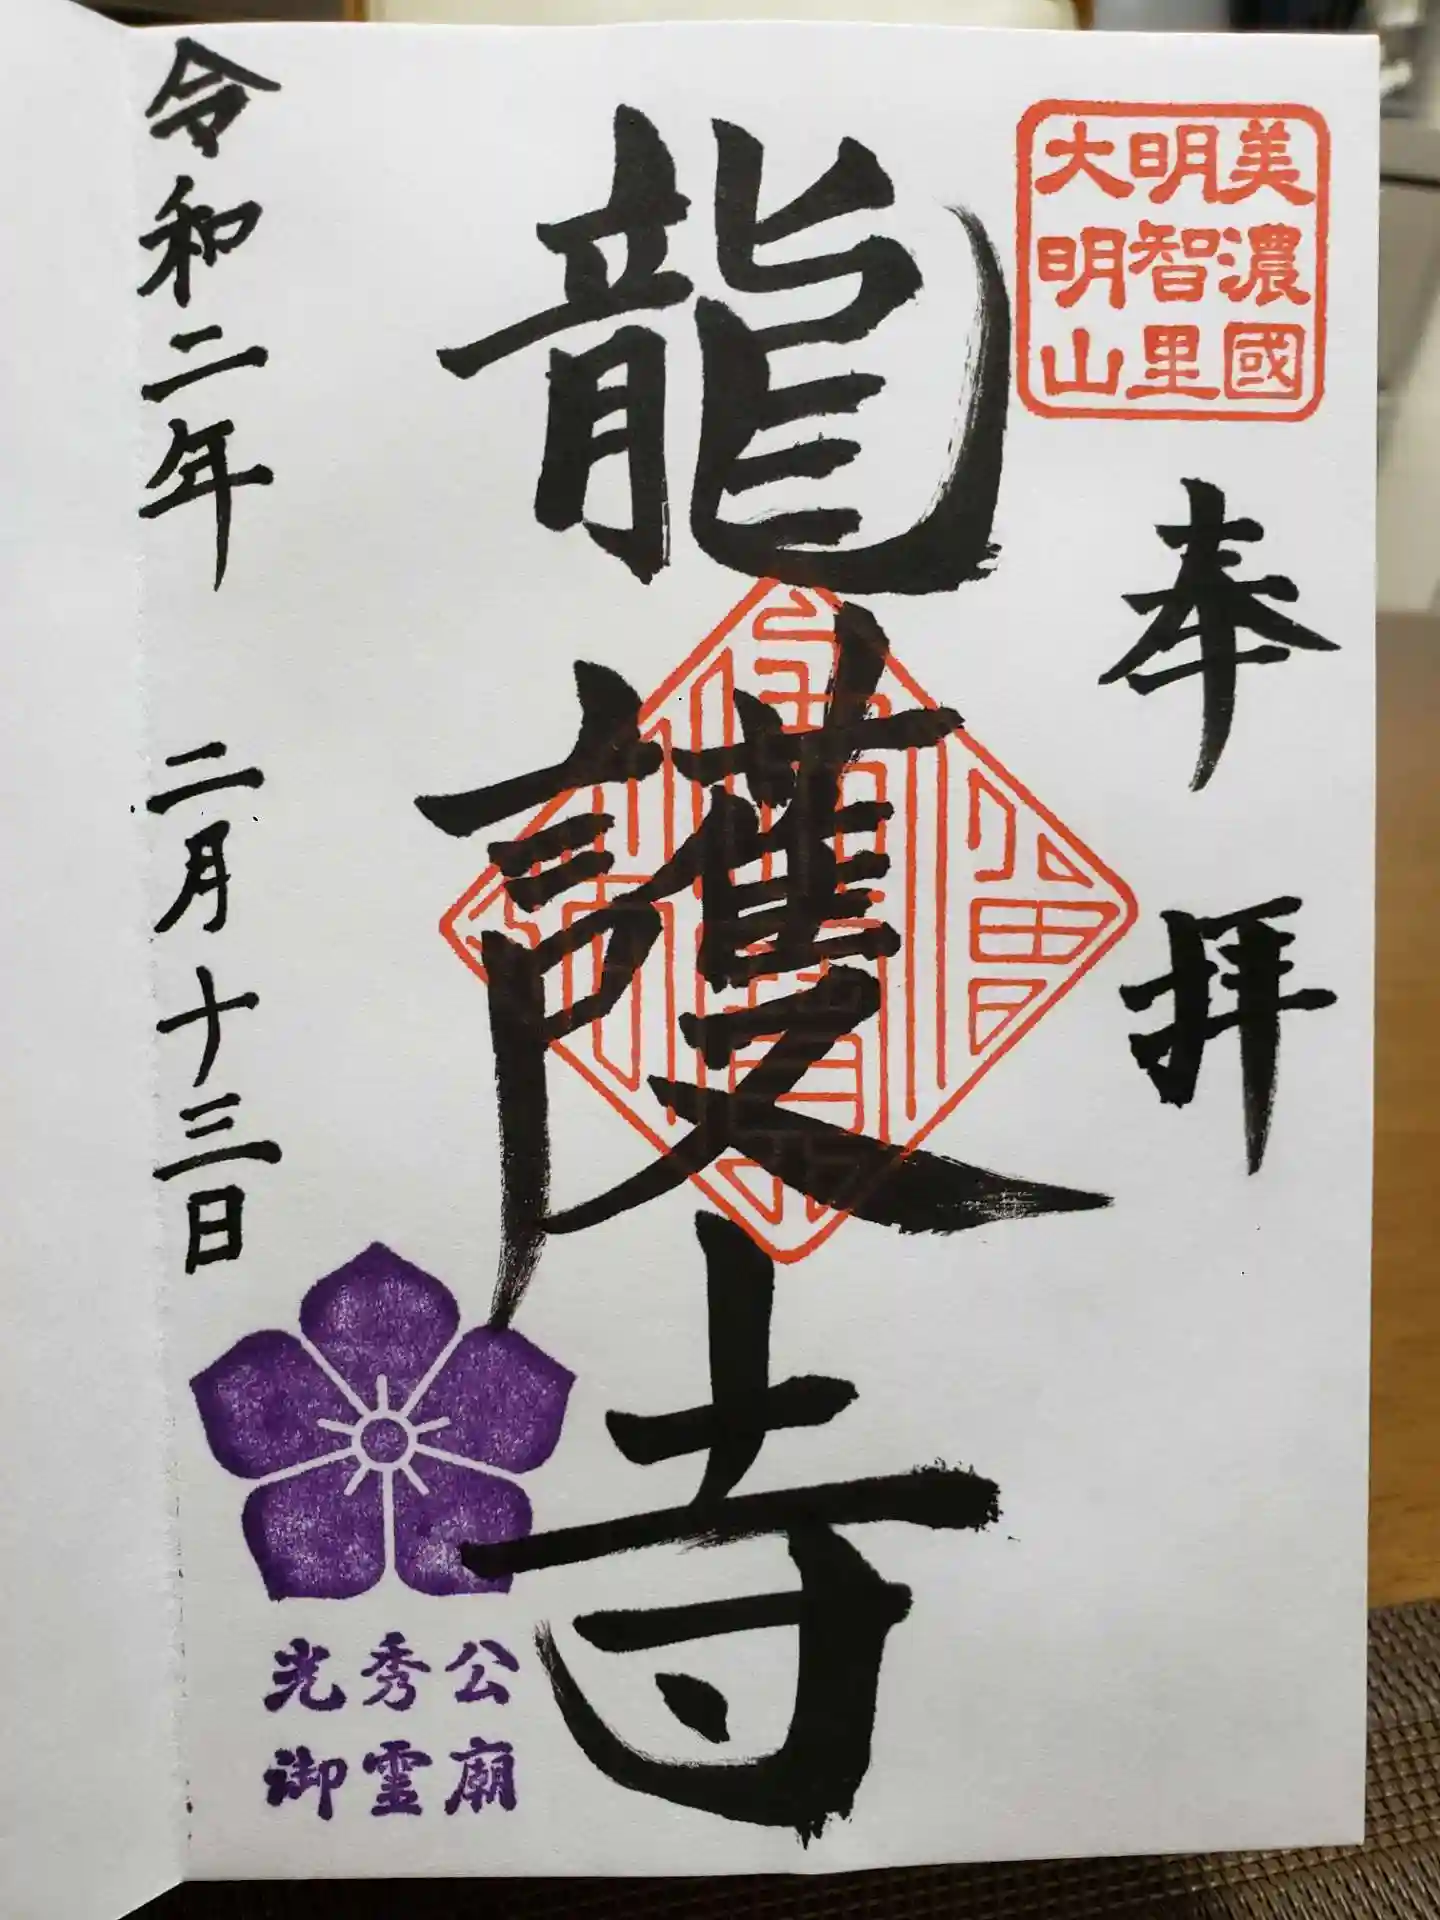 美濃國
明智里
大明山
奉拝
龍護寺
令和二年 二月十三日
光秀公
御霊廟